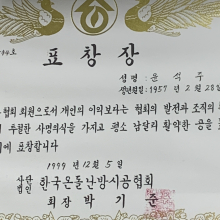 표창장
성명 : 윤석구
생년월일 : 1957년 2월 28일
협회 회원으로서 개인의 이익보다는 협회의 발전과 조직의
투철한 사명의식을 가지고 평소 남달리 활약한 공을
에 표창합니다
1999년 12월 5일
사단법인 한국온돌난방시공협회
회장 박기준